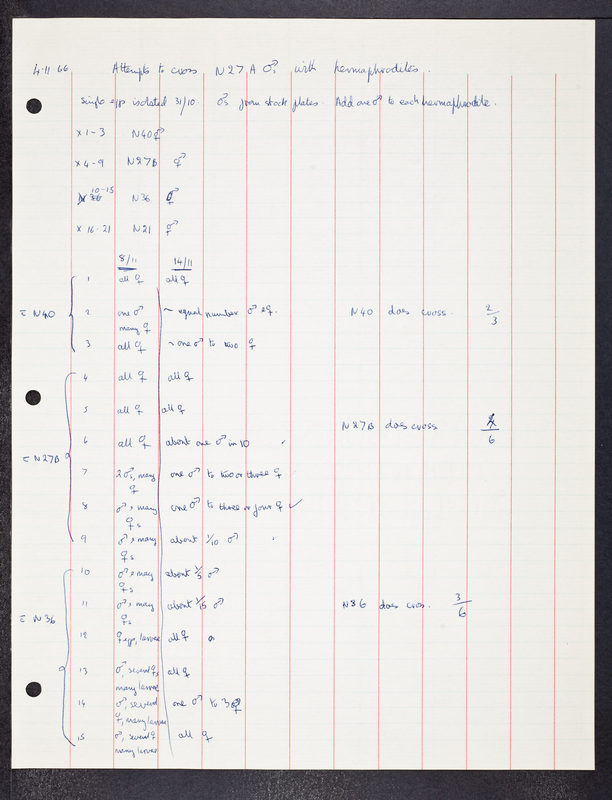 4.11.66 Attempts to cross N27A ♂s with hermaphrodites.
Single eggs isolated 31/10. ♂s from stock plates. Add one ♂ to each hermaphrodite.
x 1-3 N40 ⚥
x 4-9 N27B ⚥
x 10-15 N36 ⚥
x 16-21 N21 ⚥
8/11 14/11
1 all ⚥ all ⚥
= N40 2 one ♂ ~ equal number ♂ & ⚥. N40 does cross. 2/3
many ⚥
3 all ⚥ ~ one ♂ to two ⚥
4 all ⚥ all ⚥
5 all ⚥ all ⚥
N27B does cross 4/6
6 all ⚥ about one ♂ in 10
= N27B
7 2 ♂s, many one ♂ to two or three ⚥
⚥
8 ♂, many one ♂ to three or four ⚥ ✓
⚥s
9 ♂, many about 1/10 ♂
⚥s
10 ♂, many about 1/5 ♂
⚥s
11 ♂, many about 1/15 ♂ N36 does cross. 3/6
⚥s
= N36
12 ⚥ egg, larvae all ⚥
13 ♂, several ⚥s all ⚥
many larvae
14 ♂, several one ♂ to 3 ⚥
⚥, many larvae
15 ♂, several ⚥ all ⚥
many larvae